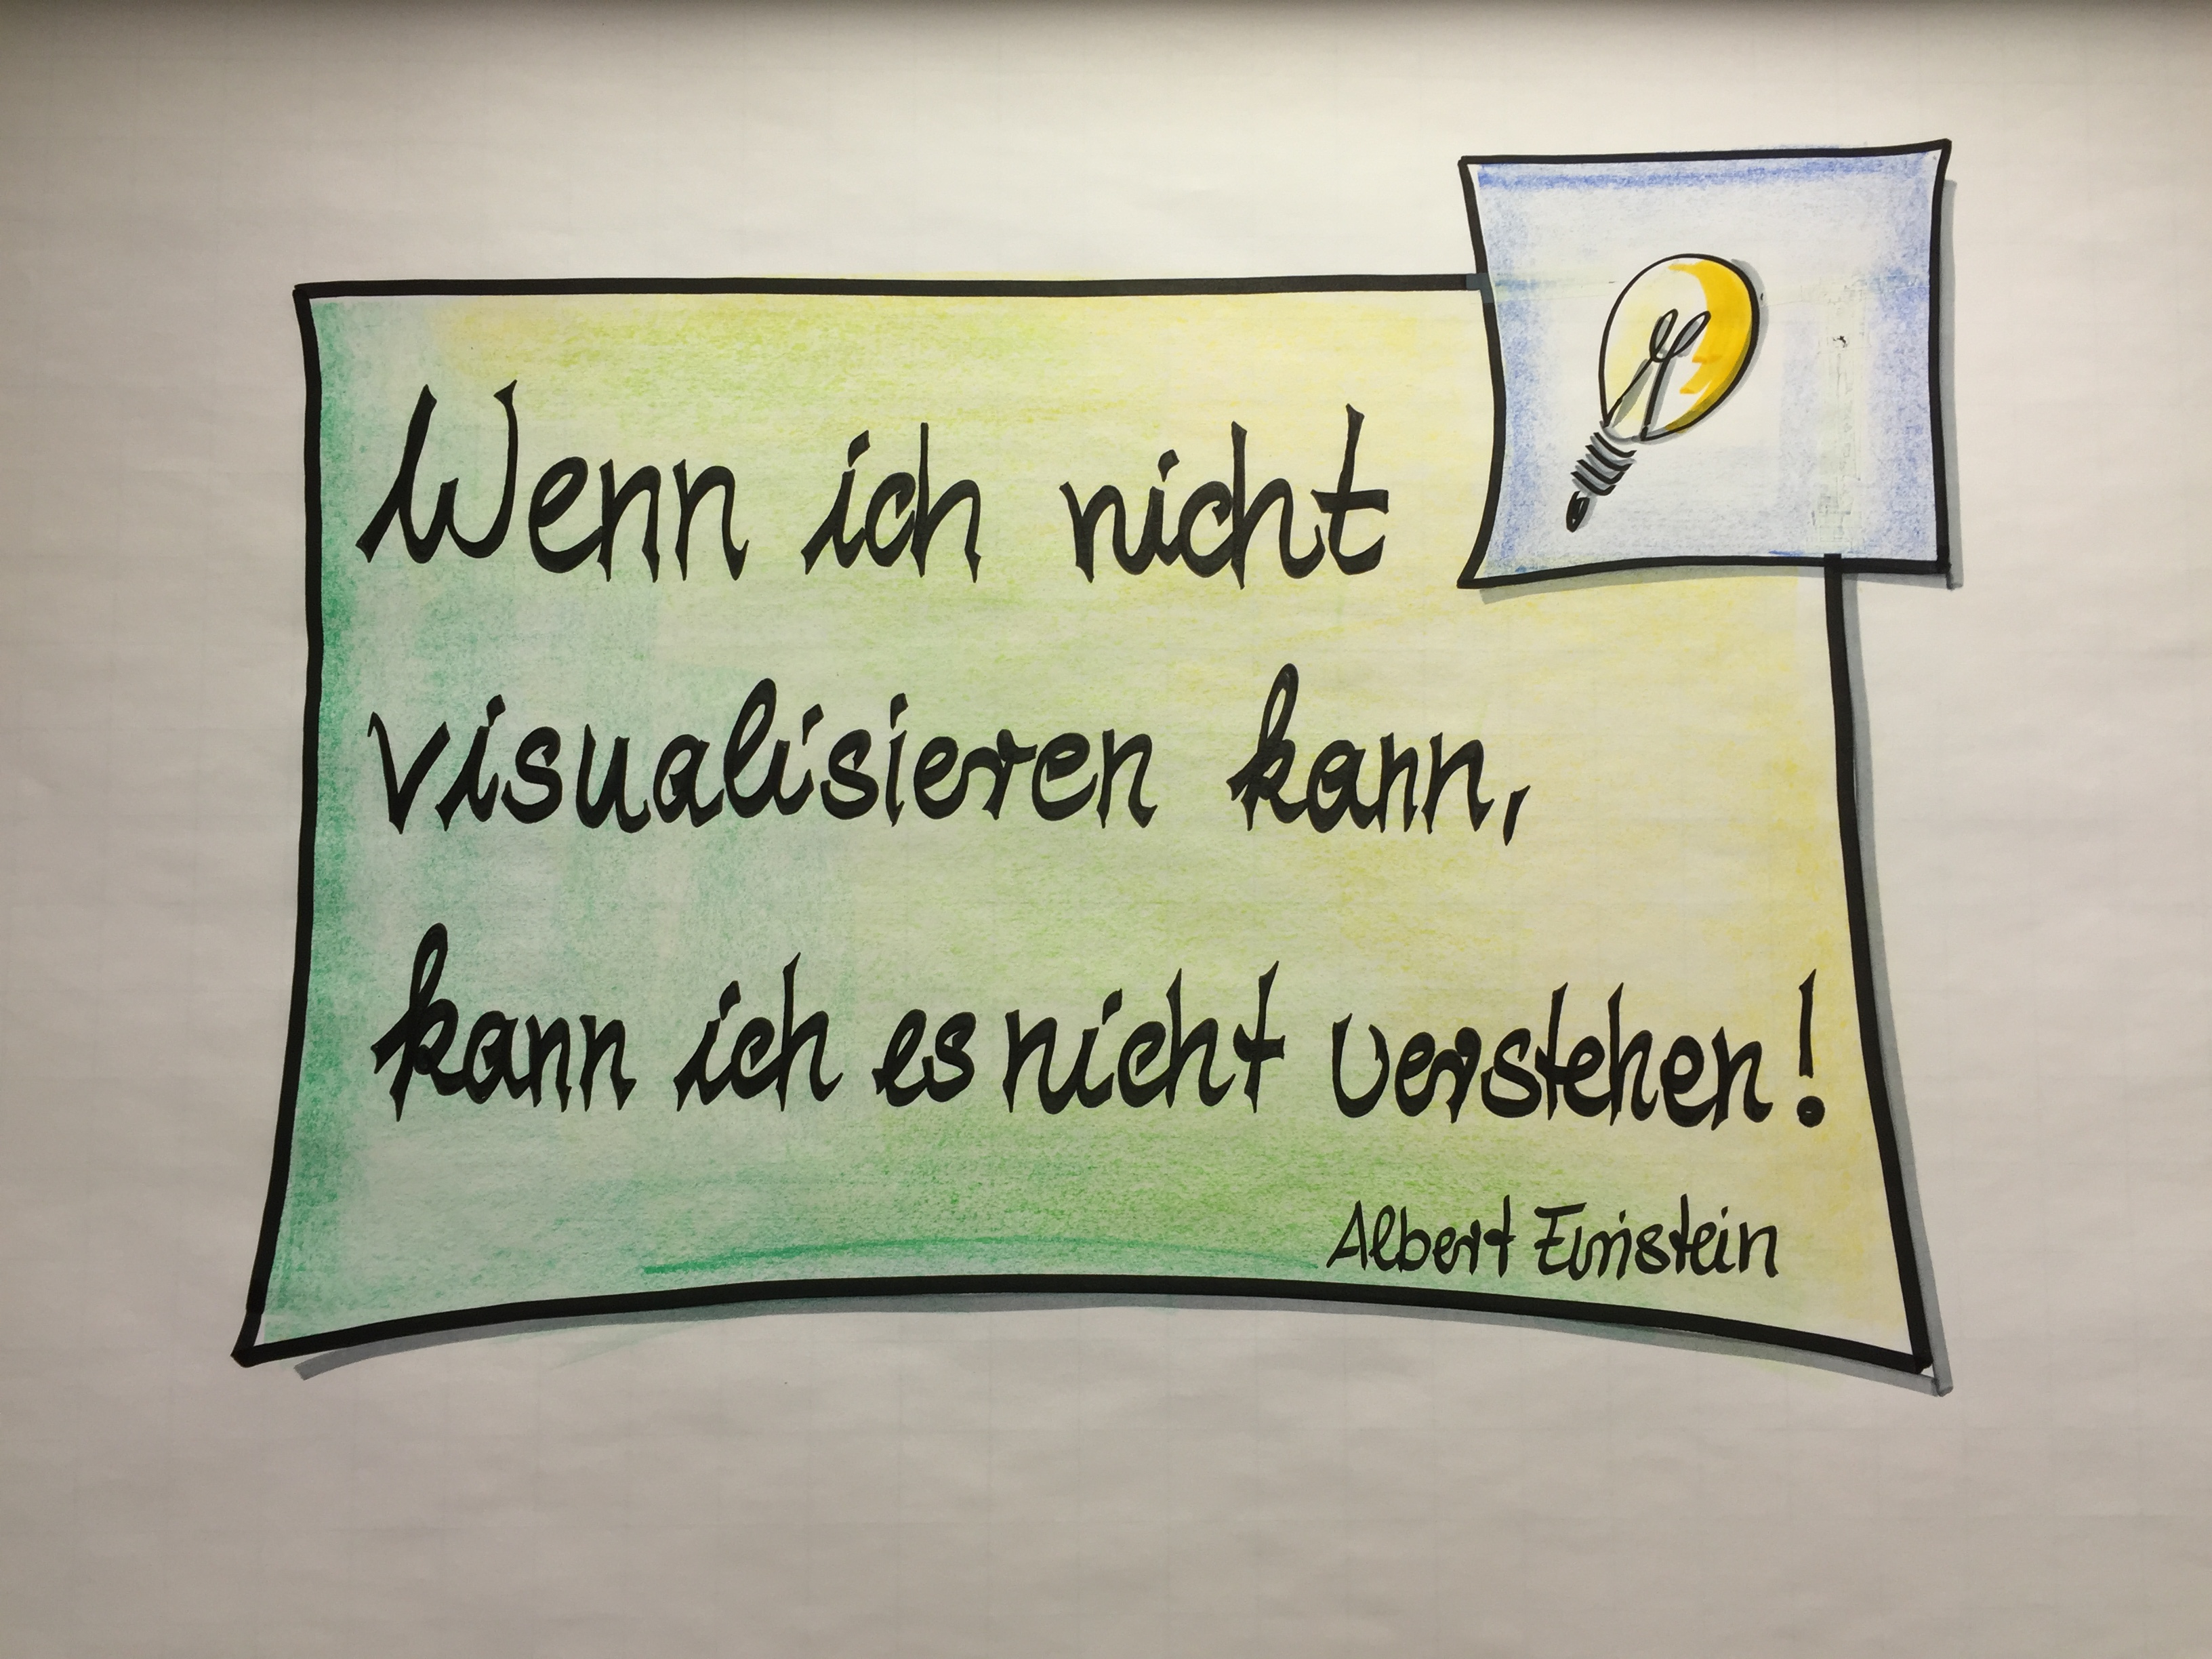 Wenn ich nicht
visualisieren kann,
kann ich es nicht verstehen!
Albert Einstein